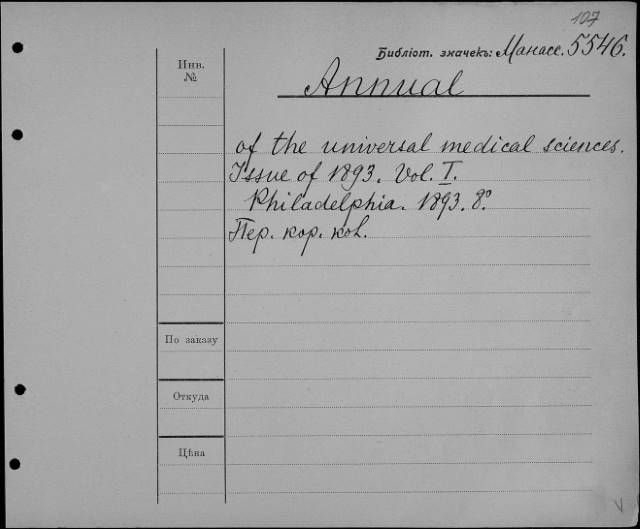 107
Библіот. значекъ: Манасс. 5546.
Инв. №
Annual
of the universal medical sciences.
Issue of 1893. Vol. I.
Philadelphia. 1893. 8º
Пер. кор. кож.
По заказу
Откуда
Цѣна
V